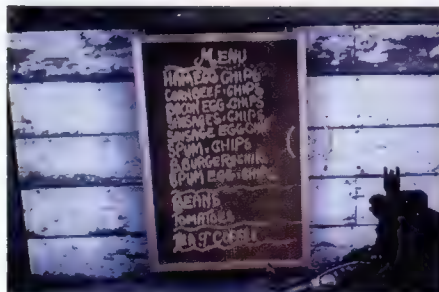 MENU
HAM EGG CHIPS
CORN BEEF·CHIPS
BACON EGG·CHIPS
SAUSAGES·CHIPS
SAUSAGE EGG CHI
SPUM·CHIPS
BURGERS CHIPS
SPUM EGG·CHIPS
BEANS
TOMATOES
TEA & COFFEE